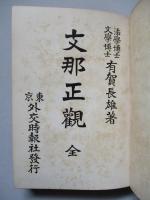 法學博士
文學博士
有賀長雄著
支那正觀 全
東京
外交時報社發行